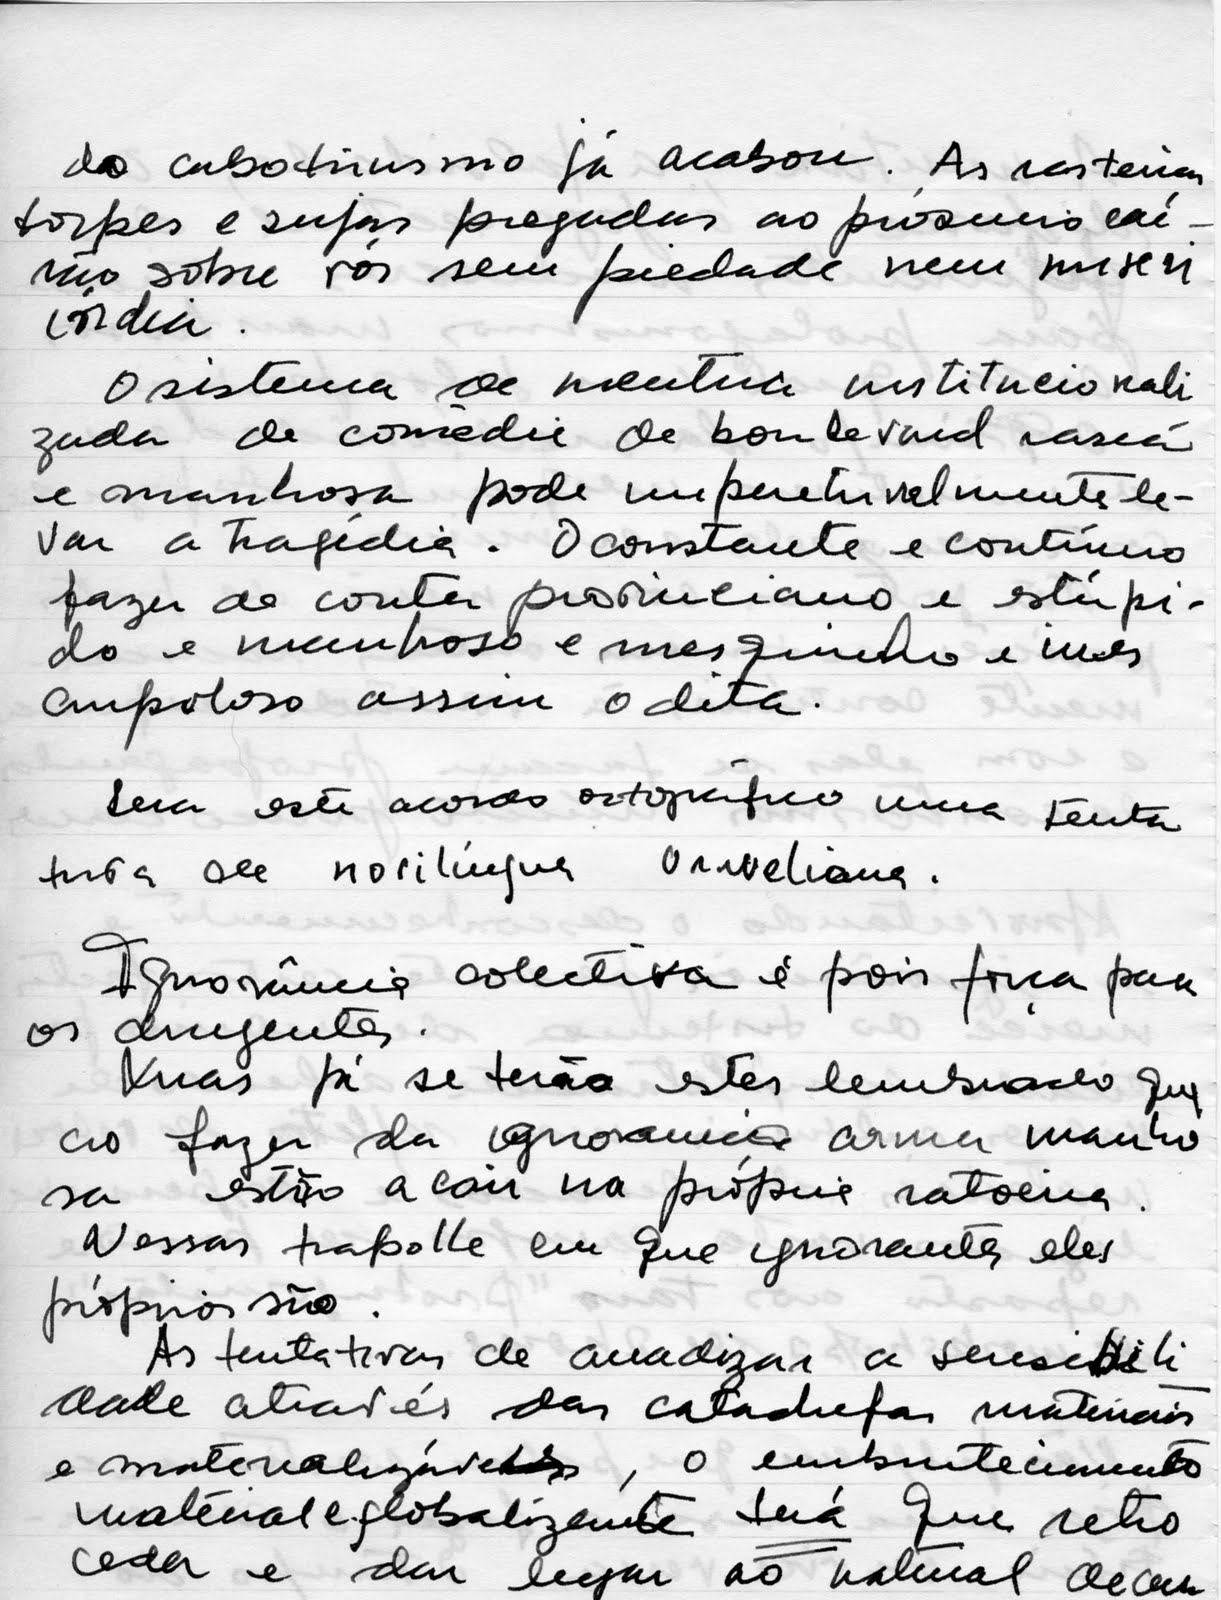 do cabotinismo já acabou. As rasteiras
torpes e sujas pregadas ao próximo cai-
rão sobre vós sem piedade nem miseri
córdia.
O sistema de mentira institucionali
zada de comédia de boulevard rasca
e manhosa pode imperturvelmente le-
var a tragédia. O constante e contínuo
fazer de conta provinciano e estúpi-
do e manhoso e mesquinho e
ampoloso assim o dita.
Sera este acordo ortográfico uma tenta
tiva de novilíngua Orweliana.
Ignorância colectiva é pois força para
os dirigentes.
Mas já se terão estes lembrado que
ao fazer da ignorancia arma manho
sa estão a cair na própria ratoeira.
Nessas trapolle em que ignorantes eles
próprios são.
As tentativas de anadizar a sensibili
dade através das materiais
e materializáveis, o embrutecimento
material e globalizante terá que retro
ceder e dar lugar ao natural